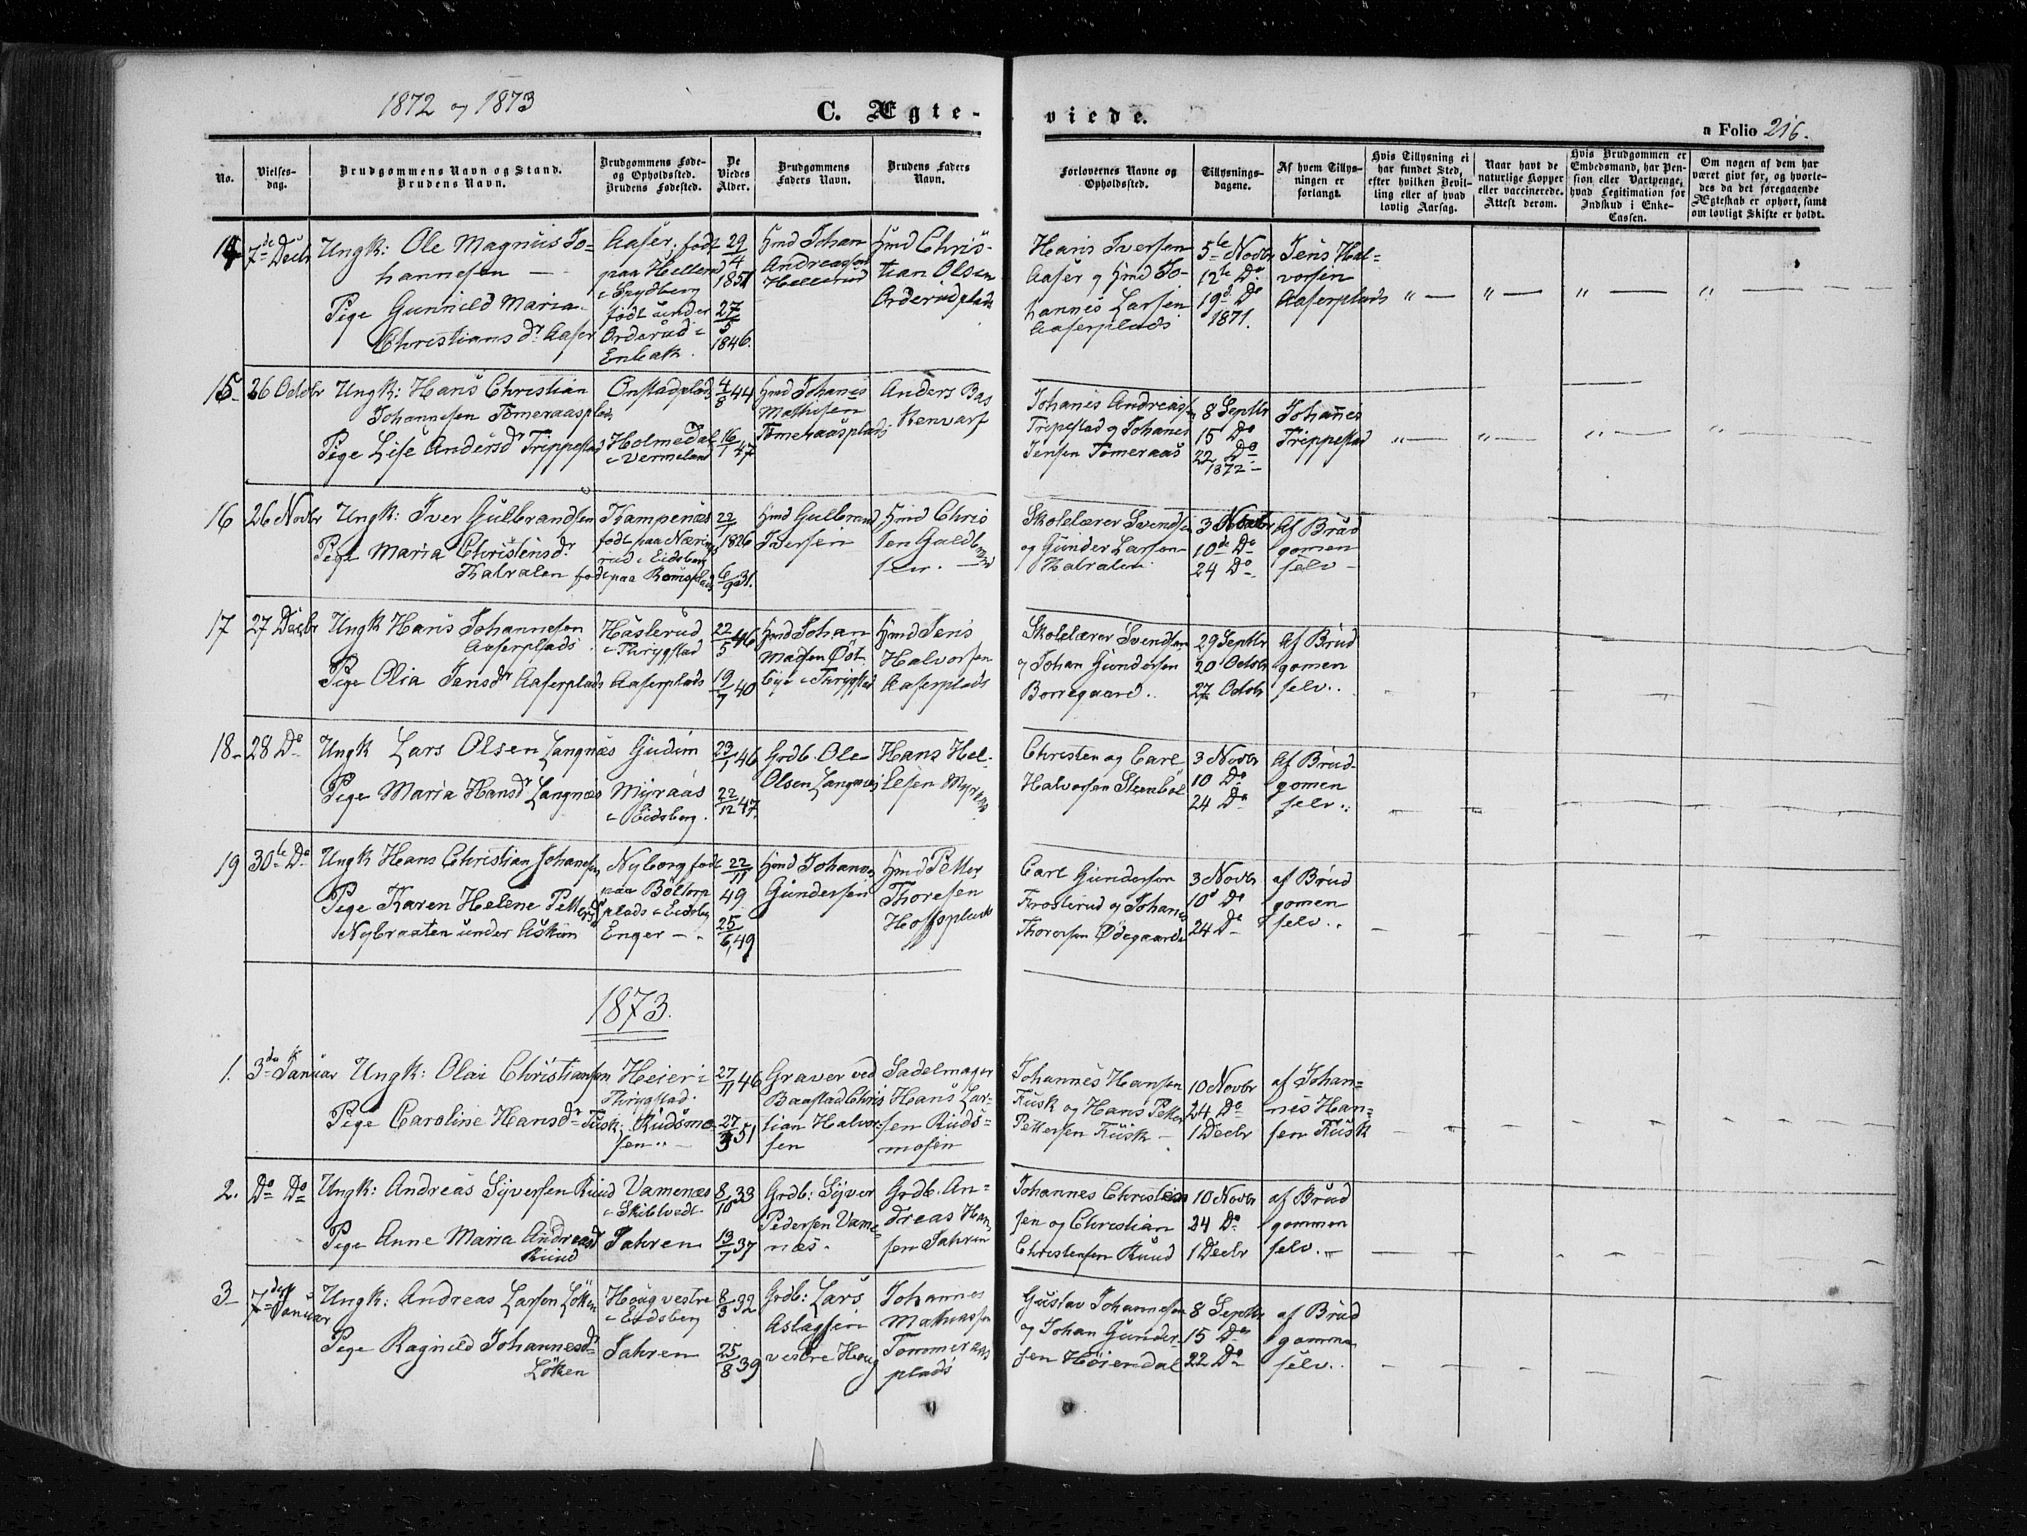 1872 og 1873
C. Ægte-
viede.
a Folio 216.
No.
Vielses-
dag.
Brudgommens Navn og Stand.
Brudens Navn.
Brudgommens Føde-
og Opholdssted.
Brudens Fødested.
De
Viedes
Alder.
Brudgommens
Faders Navn.
Brudens Faders
Navn.
Forlovernes Navne og
Opholdssted.
Tillysnings-
dagene.
Af hvem Tillys-
ningen er
forlangt.
Hvis Tillysning ei
har fundet Sted,
efter hvilken Bevil-
ling eller af hvad
lovlig Aarsag.
Naar havt de
naturlige Kopper
eller vaccinerede.
Attest derom.
Hvis Brudgommen er
Embedsmand, har Pen-
sion eller Vartpenge,
hvad Legitimation for
Indskud i Enke-
Cassen.
Om nogen af dem har
været givt før, og hvorle-
des da det foregaaende
Ægteskab er ophørt, samt
om lovligt Skifte er holdt.
14
7de Decbr
Ungk: Ole Magnus Jo-
hannesen
Pige Gunnild Maria
Christiansdr Aaser
Aaser, født
paa Hellerud
i Spydberg
født under
Orderud i
Enbak.
29/4
1851
27/5
1846.
Hmd Johan
Andreassen
Hellerud
Hmd Chris-
tian Olsen
Orderudplads
Hans Iversen
Aaser og Hmd Jo-
hannes Larsen
Aaserplads
5te Novbr
12te Do
19de Do
1871.
Jens Hal-
vorsen
Aaserplads
" — " — " — " —
15
26 Octobr
Ungk: Hans Christian
Johannesen Tømeraasplads
Pige Lise Andersdr Trippestad
Onstadplads
Holmedal
i Vermeland
4/8 44
16/1 47
Hmd Johanes
Mathisen
Tømeraasplads
Anders Bas
Renvarf
Johanes Andreas
Trippestad og Johanes
Jensen Tømeraas
8 Septbr
15 Do
22 Do
1872
Johanes
Trippestad
" — " — " — "
16
26 Novbr
Ungk: Iver Gulbrandsen
Pige Maria Christensdr
Katralen
Kampenæs
født paa Nærings
rud i Eidsberg
født paa Romsplads
22/1
1826
6/9 31.
Hmd Gulbrand
Iversen
Hmd Chris
ten Guldbrand
sen.
Skolelærer Svendsen
og Gunder Larsen
Katralen
3 Novbr
10de Do
24 Do
Af Brud
gomen
selv
17
27 Decbr
Ungk Hans Johannesen
Aaserplads
Pige Olia Jensdr Aaserplads
Haslerud
i Thrygstad
Aaserplads
22/5 46
19/7 40
Hmd Johan
Madsen Øst-
bye i Thrygstad
Hmd Jens
Halvorsen
Aaserplads
Skolelærer Svendsen
og Johan Gundersen
Borregaard.
29 Septbr
20 Octobr
27 Octobr
Af Brud
gomen
selv.
18
28 Do
Ungk Lars Olsen Langnæs
Pige Maria Hansdr Langnæs
Gudim
Myraas
i Eidsberg.
23/1 46
22/12 47.
Grdb. Ole
Olsen Langnæs
Hans Hel-
lesen Myraas
Christen og Carl
Halvorsen Steenbøl
3 Novbr
10 Do
24 Do
Af Brud-
gomen
selv.
19
30te Do
Ungk Hans Christian Johanesen
Pige Karen Helene Pettersdr
Nybraaten under Askim
Nyborg født
paa Boltorp
plads i Eidsberg
Enger
22/11
49
25/6 49
Hmd Johanes
Gundersen
Hmd Petter
Thoresen
Hofsplads
Carl Gundersen
Frosterud og Johanes
Thoresen Ødegaard
3 Novbr
10d Do
24 Do
af Brud
gomen
selv.
1873.
1.
3die Januar
Ungk: Olai Christiansen
Pige Caroline Hansdr Tusk
Heier i
Thrygstad.
Rudsmo
sen
27/11 46
27/3 51
Graver ved
Baastad Chris
tian Halvor-
sen
Sadelmager
Hans Lar-
sen Ruds-
mosen
Johannes Hansen
Rusk og Hans Petter
Pettersen Rusk
10 Novbr
24 Do
1 Decbr
af Johan-
nes Han-
sen Rusk
2.
Do Do
Ungk: Andreas Syversen Ruud
Pige Anne Maria Andreasdr
Ruud
Vamenæs
i Skibtvedt
Jahren
8/10 33
13/7 37
Grdb: Syver
Pedersen Vame
næs.
Grdb. An-
dreas Han
sen Jahren
Johannes Christian
sen og Christian
Christensen Ruud
10 Novbr
24 Do
1 Decbr
af Brud
gommen
selv.
3
7de Januar
Ungk: Andreas Larsen Løken
Pige Ragnild Johannesdr
Løken
Houg vestre
i Eidsberg
Jahren
8/3 32
25/8 39
Grdb: Lars
Aslagsen
vestre Houg
Johannes
Mathiassen
Tommeraas
plads
Gustav Johannesen
og Johan Gunder-
sen Høiendal
8 Septbr
15 Do
22 Do
af Brud
gomme
selv.